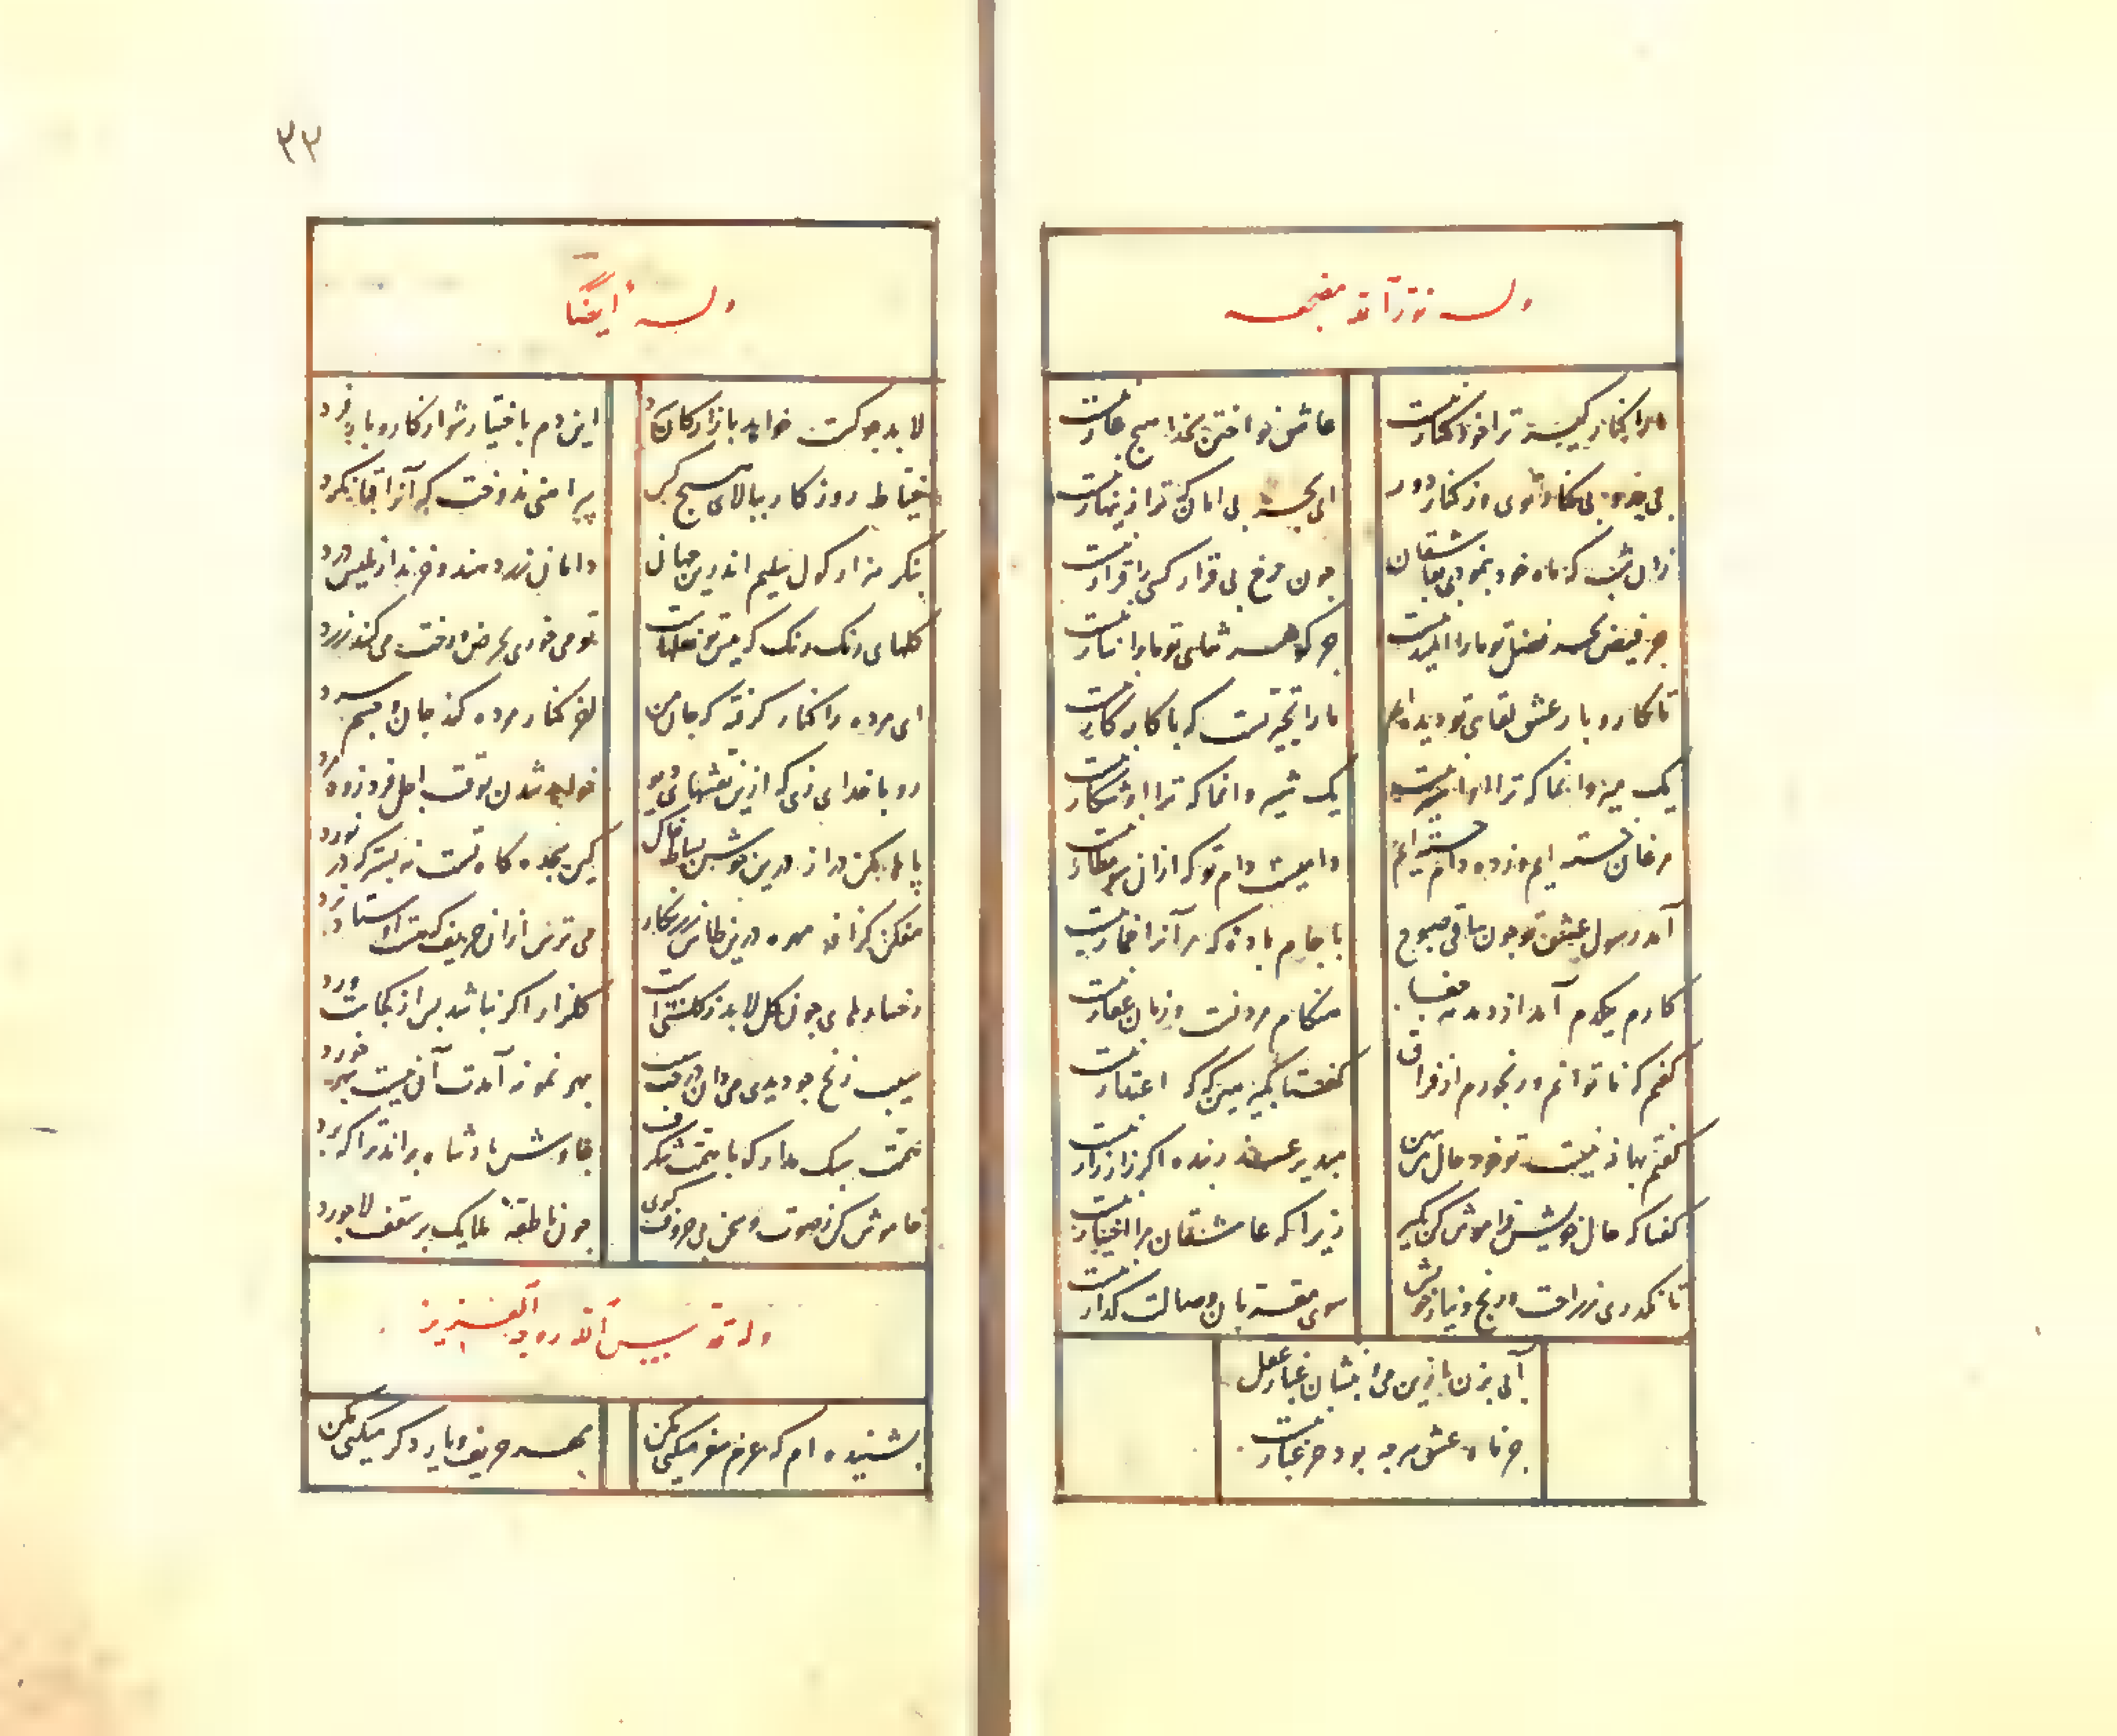 وله نور الله مضجعه
ما را کنار گیر ترا خود کنار نیست
عاشق نواختن بخدا هیچ عار نیست
بی حد و بی کناری و از کنار دور
ای بحر بی امان که ترا زینهار نیست
زان شب که ماه خود بنمودی بعاشقان
چون چرخ بی قرار کسی را قرار نیست
جز فیض بحر فضل تو ما را امید نیست
جز گوهر ثنای تو ما را نثار نیست
تا کار و بار عشق لقای تو دیده‌ام
ما را تحیریست که با کار کار نیست
یک میر وا نما که ترا او اسیر نیست
یک شیر وا نما که ترا او شکار نیست
مرغان خسته‌ایم و زده دام
دامیست دام تو که ازان سو مطار نیست
آمد رسول عشق تو چون ساقی صبوح
با جام باده‌ که مر آنرا خمار نیست
کارم یکدم آمد از دمدمه جفا
هنگام مردنست و زمان عقار نیست
گفتم که ناتوانم و رنجورم از فراق
گفتا بگیر هین که گه اعتذار نیست
گفتم بهانه نیست تو خود حال من ببین
بپذیر عذر بنده اگر زار زار نیست
گفتا که حال خویش فراموش کن بگیر
زیرا که عاشقان مرا اختیار نیست
تا نگذری ز راحت و رنج و نیاز خوش
سوی مقربان وصالت گذار نیست
آبی بزن بازین می و بنشان غبار عقل
جز ماه عشق هرچه بود جز غبار نیست
۳۳
وله ایضًا
لابد چو گشت خواهد بازارگان
این دم باختیار شو از کار و بار فرد
خیاط روزگار ببالای هیچ کس
پیراهنی ندوخت که آنرا قبا نکرد
بنگر هزار گول سلیم اندرین جهان
دامان زر دهند و خرند از بلیس درد
گلهای رنگ رنگ که پیش تو نقلهاست
تو می خوری بر عرض و رخت می کند زرد
ای مرده را کنار گرفته که جان من
آخر کنار مرده کند جان و جسم سرد
رو با خدای زی که ازین نقشهای دیو
خواهی شدن بوقت اجل
پاها مکن دراز درین خوش بساط خاک
کین سجده گاه تست نه بستر که در نورد
مفکن گزافه مهره درین طاس زرنگار
می ترس ازان حریف که هست اوستاد نرد
رخسارهای چون گل لابد ز گلشنی است
گلزار اگر نباشد پس از کجاست ورد
سیب زنخ چو دیدی می دان درخت
بهر نمونه آمدت آن نیست بهر خورد
همت سبک مدار که با همت شگرف
چاوش پادشاه براند ترا که برد
خاموش کن ز صوت و سخن بی حروف گوی
چون ناطقهٔ ملایک بر سقف لاجورد
وله قدس الله روحه العزیز
بشنیده‌ام که عزم سفر میکنی مکن
مهر حریف و یار دگر میکنی مکن